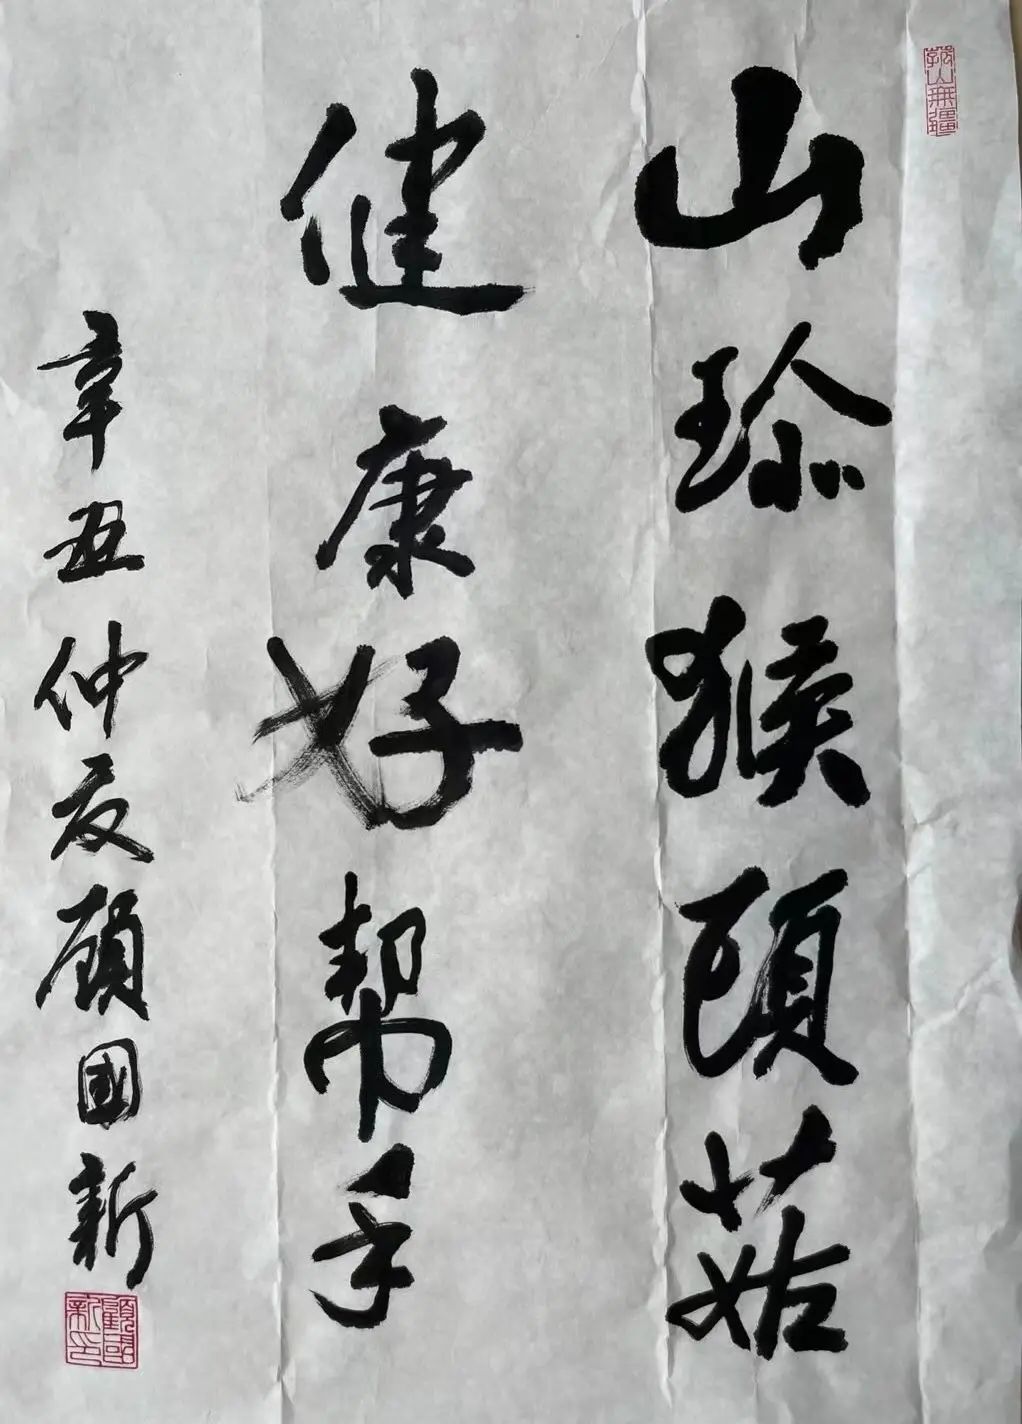 山珍猴頭菇
健康好帮手
辛丑仲夏顧國新
顧國新印